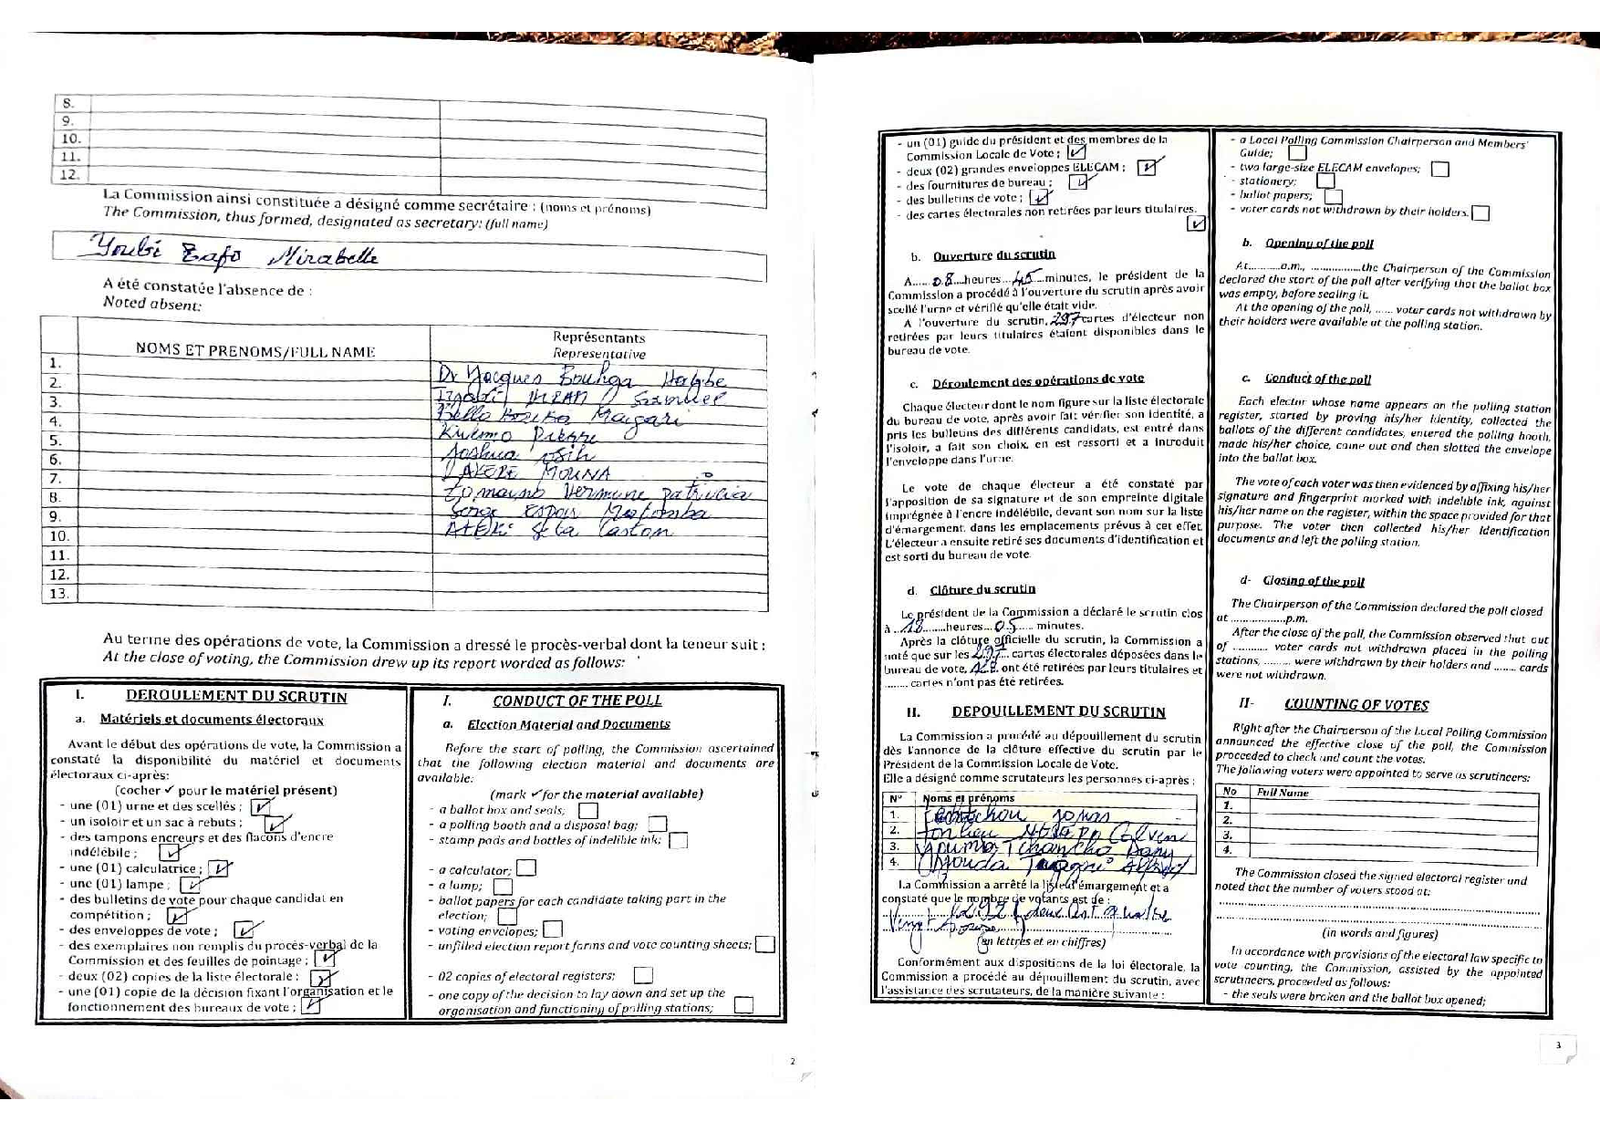 8.
9.
10.
11.
12.
La Commission ainsi constituée a désigné comme secrétaire : (noms et prénoms)
The Commission, thus formed, designated as secretary: (full name)
Youbi Zafo Mirabelle
A été constatée l'absence de :
Noted absent:
NOMS ET PRENOMS/FULL NAME
Représentants
Representative
1.
2. Dr Jacques Bouhga Hagbe
3. Samuel
4. Bello Bouba Maigari
5. Kwemo Pierre
6. Joshua Osih
7.
8. Hermine Patricia
9. Serge Espoir Matomba
10. Ateki Seta Caxton
11.
12.
13.
Au terme des opérations de vote, la Commission a dressé le procès-verbal dont la teneur suit :
At the close of voting, the Commission drew up its report worded as follows:
I. DEROULEMENT DU SCRUTIN
a. Matériels et documents électoraux
Avant le début des opérations de vote, la Commission a
constaté la disponibilité du matériel et documents
électoraux ci-après:
(cocher ✓ pour le matériel présent)
- une (01) urne et des scellés ; ✓
- un isoloir et un sac à rebuts ; ✓
- des tampons encreurs et des flacons d'encre
indélébile ; ✓
- une (01) calculatrice ; ✓
- une (01) lampe ; ✓
- des bulletins de vote pour chaque candidat en
compétition ; ✓
- des enveloppes de vote ; ✓
- des exemplaires non remplis du procès-verbal de la
Commission et des feuilles de pointage ; ✓
- deux (02) copies de la liste électorale ; ✓
- une (01) copie de la décision fixant l'organisation et le
fonctionnement des bureaux de vote ; ✓
I. CONDUCT OF THE POLL
a. Election Material and Documents
Before the start of polling, the Commission ascertained
that the following election material and documents are
available:
(mark ✓ for the material available)
- a ballot box and seals;
- a polling booth and a disposal bag;
- stamp pads and bottles of indelible ink;
- a calculator;
- a lamp;
- ballot papers for each candidate taking part in the
election;
- voting envelopes;
- unfilled election report forms and vote counting sheets;
- 02 copies of electoral registers;
- one copy of the decision to lay down and set up the
organisation and functioning of polling stations;
2
- un (01) guide du président et des membres de la
Commission Locale de Vote ; ✓
- deux (02) grandes enveloppes ELECAM ; ✓
- des fournitures de bureau ; ✓
- des bulletins de vote ; ✓
- des cartes électorales non retirées par leurs titulaires. ✓
b. Ouverture du scrutin
A......08....heures...45....minutes, le président de la
Commission a procédé à l'ouverture du scrutin après avoir
scellé l'urne et vérifié qu'elle était vide.
A l'ouverture du scrutin, 297 cartes d'électeur non
retirées par leurs titulaires étaient disponibles dans le
bureau de vote.
c. Déroulement des opérations de vote
Chaque électeur dont le nom figure sur la liste électorale
du bureau de vote, après avoir fait vérifier son identité, a
pris les bulletins des différents candidats, est entré dans
l'isoloir, a fait son choix, en est ressorti et a introduit
l'enveloppe dans l'urne.
Le vote de chaque électeur a été constaté par
l'apposition de sa signature et de son empreinte digitale
imprégnée à l'encre indélébile, devant son nom sur la liste
d'émargement, dans les emplacements prévus à cet effet.
L'électeur a ensuite retiré ses documents d'identification et
est sorti du bureau de vote.
d. Clôture du scrutin
Le président de la Commission a déclaré le scrutin clos
à ..18......heures...05.... minutes.
Après la clôture officielle du scrutin, la Commission a
noté que sur les 297 cartes électorales déposées dans le
bureau de vote, ont été retirées par leurs titulaires et
........ cartes n'ont pas été retirées.
II. DEPOUILLEMENT DU SCRUTIN
La Commission a procédé au dépouillement du scrutin
dès l'annonce de la clôture effective du scrutin par le
Président de la Commission Locale de Vote.
Elle a désigné comme scrutateurs les personnes ci-après :
N° Noms et prénoms
1. Jonas
2. Calvin
3. Tchancho Dany
4.
La Commission a arrêté la liste d'émargement et a
constaté que le nombre de votants est de :
(en lettres et en chiffres)
Conformément aux dispositions de la loi électorale, la
Commission a procédé au dépouillement du scrutin, avec
l'assistance des scrutateurs, de la manière suivante :
- a Local Polling Commission Chairperson and Members'
Guide;
- two large-size ELECAM envelopes;
- stationery;
- ballot papers;
- voter cards not withdrawn by their holders.
b. Opening of the poll
At..........a.m., .................the Chairperson of the Commission
declared the start of the poll after verifying that the ballot box
was empty, before sealing it.
At the opening of the poll, ...... voter cards not withdrawn by
their holders were available at the polling station.
c. Conduct of the poll
Each elector whose name appears on the polling station
register, started by proving his/her identity, collected the
ballots of the different candidates, entered the polling booth,
made his/her choice, came out and then slotted the envelope
into the ballot box.
The vote of each voter was then evidenced by affixing his/her
signature and fingerprint marked with indelible ink, against
his/her name on the register, within the space provided for that
purpose. The voter then collected his/her identification
documents and left the polling station.
d- Closing of the poll
The Chairperson of the Commission declared the poll closed
at ..................p.m.
After the close of the poll, the Commission observed that out
of ........... voter cards not withdrawn placed in the polling
stations, ......... were withdrawn by their holders and ....... cards
were not withdrawn.
II- COUNTING OF VOTES
Right after the Chairperson of the Local Polling Commission
announced the effective close of the poll, the Commission
proceeded to check and count the votes.
The following voters were appointed to serve as scrutineers:
No Full Name
1.
2.
3.
4.
The Commission closed the signed electoral register and
noted that the number of voters stood at:
(in words and figures)
In accordance with provisions of the electoral law specific to
vote counting, the Commission, assisted by the appointed
scrutineers, proceeded as follows:
- the seals were broken and the ballot box opened;
3